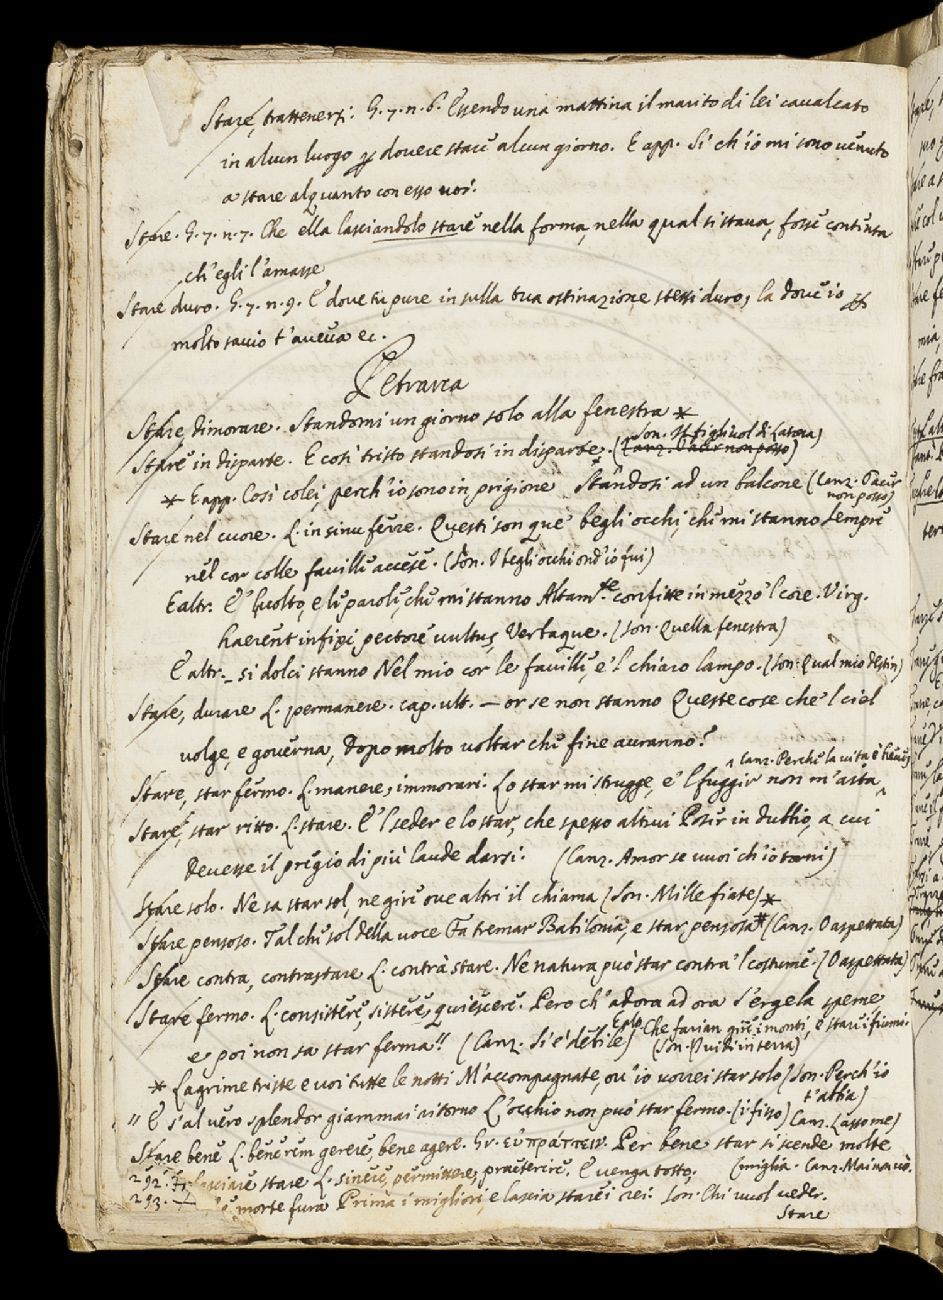 Stare, trattenersi: G. 7. n. 6. Essendo una mattina il marito di lei cavalcato
in alcun luogo per dovere stare alcun giorno. E app. Si ch'io mi sono venuto
a stare alquanto con esso voi.
Stare. G. 7. n. 7. Che ella lasciandolo stare nella forma, nella qual si stava, fosse contenta
ch'egli l'amasse
Stare duro. G. 7. n. 9. E dove tu pure in sulla tua ostinazione stessi duro, la dove io per
molto savio t'aveva ec.
Petrarca
Stare, dimorare. Standomi un giorno solo alla fenestra *
Son. Il figliuol di Latona)
Stare in disparte. E così tristo standosi in disparte. (Canz. Tacer non posso)
* E app. Così colei, perch'io sono in prigione Standosi ad un balcone (Canz. Tacer
non posso)
Stare nel cuore. L. in sinu ferre. Questi son que' begli occhi, che mi stanno Sempre
nel cor colle faville accese. (Son. I begli occhi ond'io fui)
E altr. E'l volto, e le parole, che mi stanno Altam.te confitte in mezzo'l core. Virg.
haerent infixi pectore vultus, Verbaque. (Son. Quella fenestra)
E altr. – si dolci stanno Nel mio cor le faville, e'l chiaro lampo. (Son. Qual mio destin)
Stare, durare L. permanere. cap. ult. — or se non stanno Queste cose che'l ciel
volge, e governa, Dopo molto voltar che fine avranno?
^ Canz. Perchè la vita è breve
Stare, star fermo. L. manere, immorari. Lo star mi strugge, e'l fuggir non m'aita ^
Stare, star ritto. L. stare. E'l seder e lo star, che spesso altrui Poser in dubbio, a cui
Devesse il pregio di più laude darsi. (Canz. Amor se vuoi ch'io torni)
Stare solo. Ne sa star sol, ne gire ove altri il chiama (Son. Mille fiate) *
Stare pensoso. Tal che sol della voce Fa tremar Babilonia, e star pensosa # (Canz. O aspettata)
Stare contra, contrastare L. contrà stare. Ne natura può star contra'l costume. (O aspettata)
Stare fermo. L. consistere, sistere, quiescere. Pero ch'adora ad ora S'erge la speme
e poi non sa star ferma!! (Canz. Si è debile) E alt. Che farian gire i monti, e stare i fiumi.
(Son. I' vidi in terra)
* Lagrime triste e voi tutte le notti M'accompagnate, ov'io vorrei star solo (Son. Perch'io
t'abbia)
" E s'al vero splendor giammai ritorno L'occhio non può star fermo. (i. fisso) Canz. Lasso me)
Stare bene L. bene rem gerere, bene agere. Gr. εὐπράττειν. Per bene star si scende molte
292. 7. Lasciare stare L. sinere, permittere, praeterire. E venga tosto, (miglia. Canz. Mai non vo'.
293. 7 morte fura Prima i migliori, e lascia stare i rei. Son. Chi vuol veder.
Stare